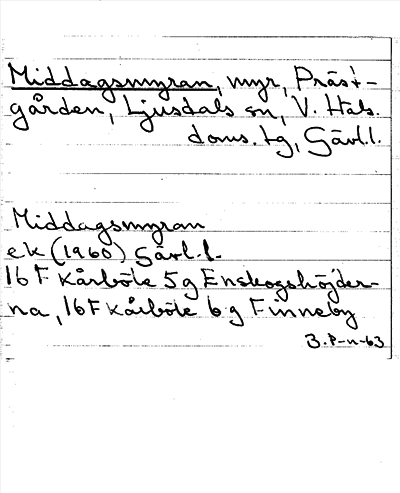 Middagsmyran, myr, Präst-
gården, Ljusdals sn, V. Häls.
doms. tg, Gävl.l.
Middagsmyran
ek (1960) Gävl.l.
16 F Kårböle 5 g Enskogshöjder-
na, 16 F Kårböle 6 g Finneby
B. P-n -63